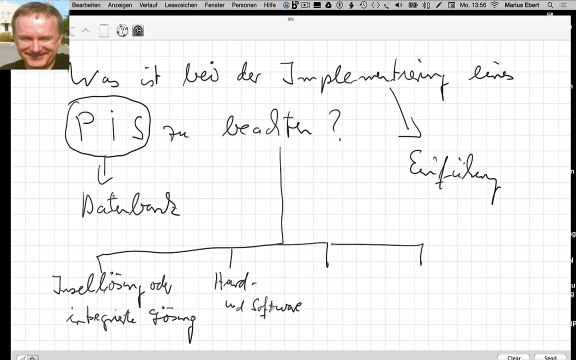 Bearbeiten Anzeigen Verlauf Lesezeichen Fenster Personen Hilfe
Mo. 13:56 Marius Ebert
Ink
Was ist bei der Implementierung eines
PiS zu beachten?
Einführung
Datenbank
Insellösung oder
integrierte Lösung
Hard-
und Software
Clear Send